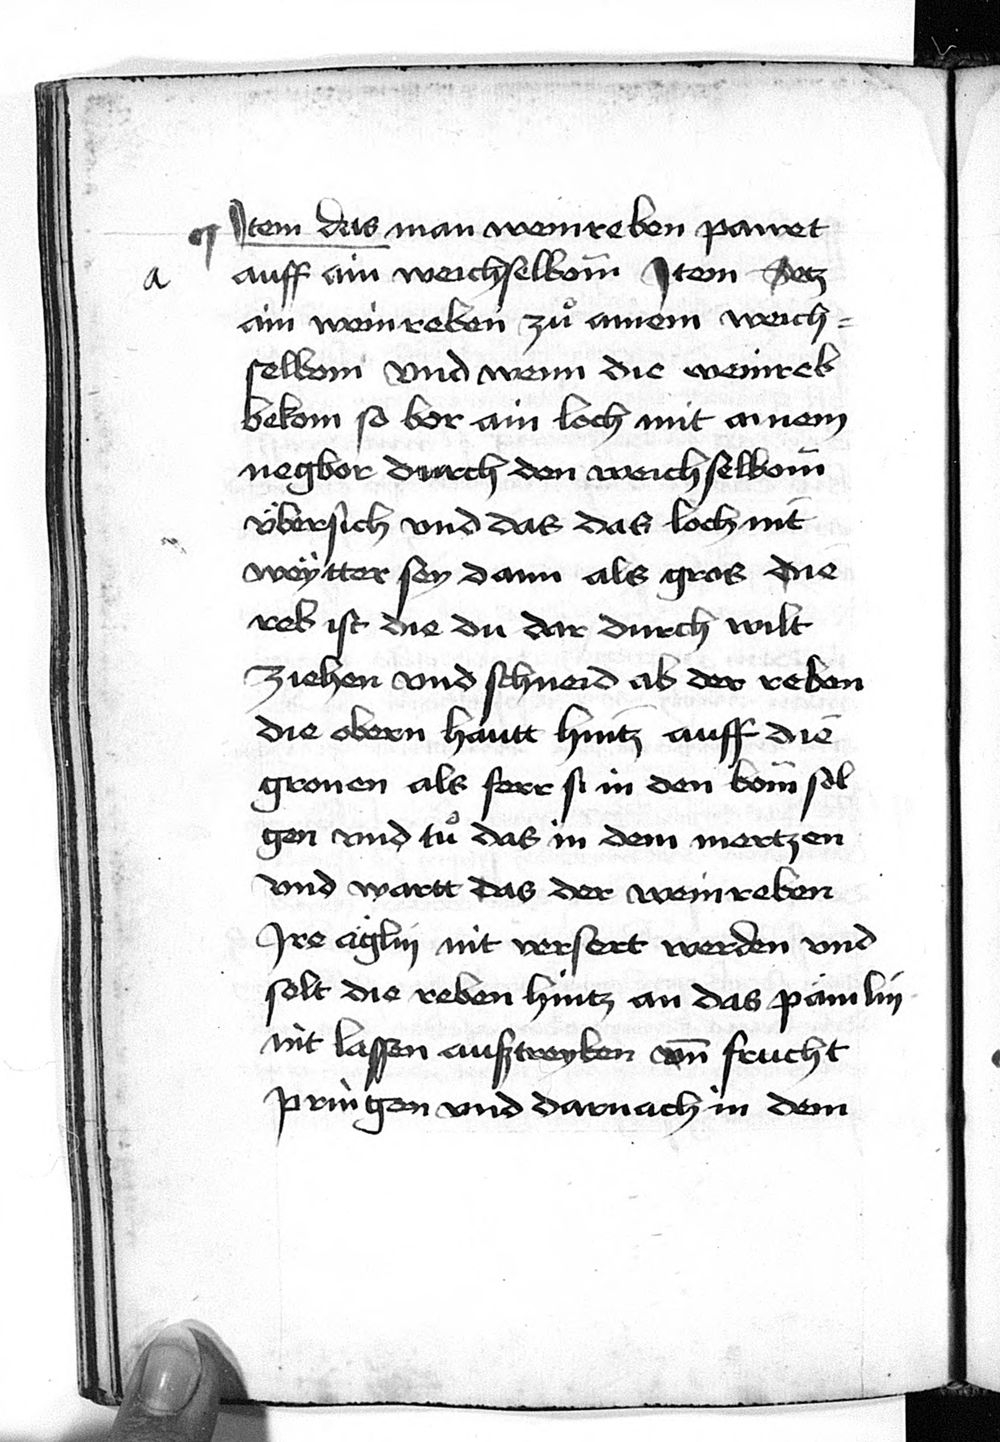 Item das man weinreben pawet
a auff ain weichselbom̄ Item Setz
ain weinreben zů ainem weich=
selbom vnd wenn die weinreb
bekom so bor ain loch mit ainem
negbor durch den weichselbom̄
v̈bersich vnd das das loch nit
weÿtter sey dann als gros die
reb ist die du dar durch wilt
Ziehen vnd schneid ab der reben
die obern hautt hintz auff die
gronen als ferr si in den bom̄ sol
gen vnd tů das in dem mertzen
vnd wartt das der weinreben
Ire äiglin nit versert werden vnd
solt die reben hintz an das pämlin
nit lassen ausztreyben vn̄ frucht
pringen vnd darnach in dem